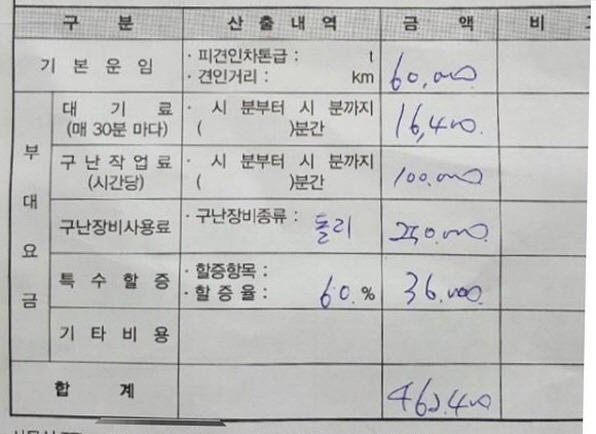 구 분 산 출 내 역 금 액 비 고
기 본 운 임 · 피견인차톤급 : t
· 견인거리 : km 60,000
부 대 요 금
대 기 료
(매 30분 마다) · 시 분부터 시 분까지
( )분간 16,400
구 난 작 업 료
(시간당) · 시 분부터 시 분까지
( )분간 100,000
구난장비사용료 · 구난장비종류 : 돌리 250,000
특 수 할 증 · 할증항목 :
· 할 증 율 : 60 % 36,000
기 타 비 용
합 계 462,400